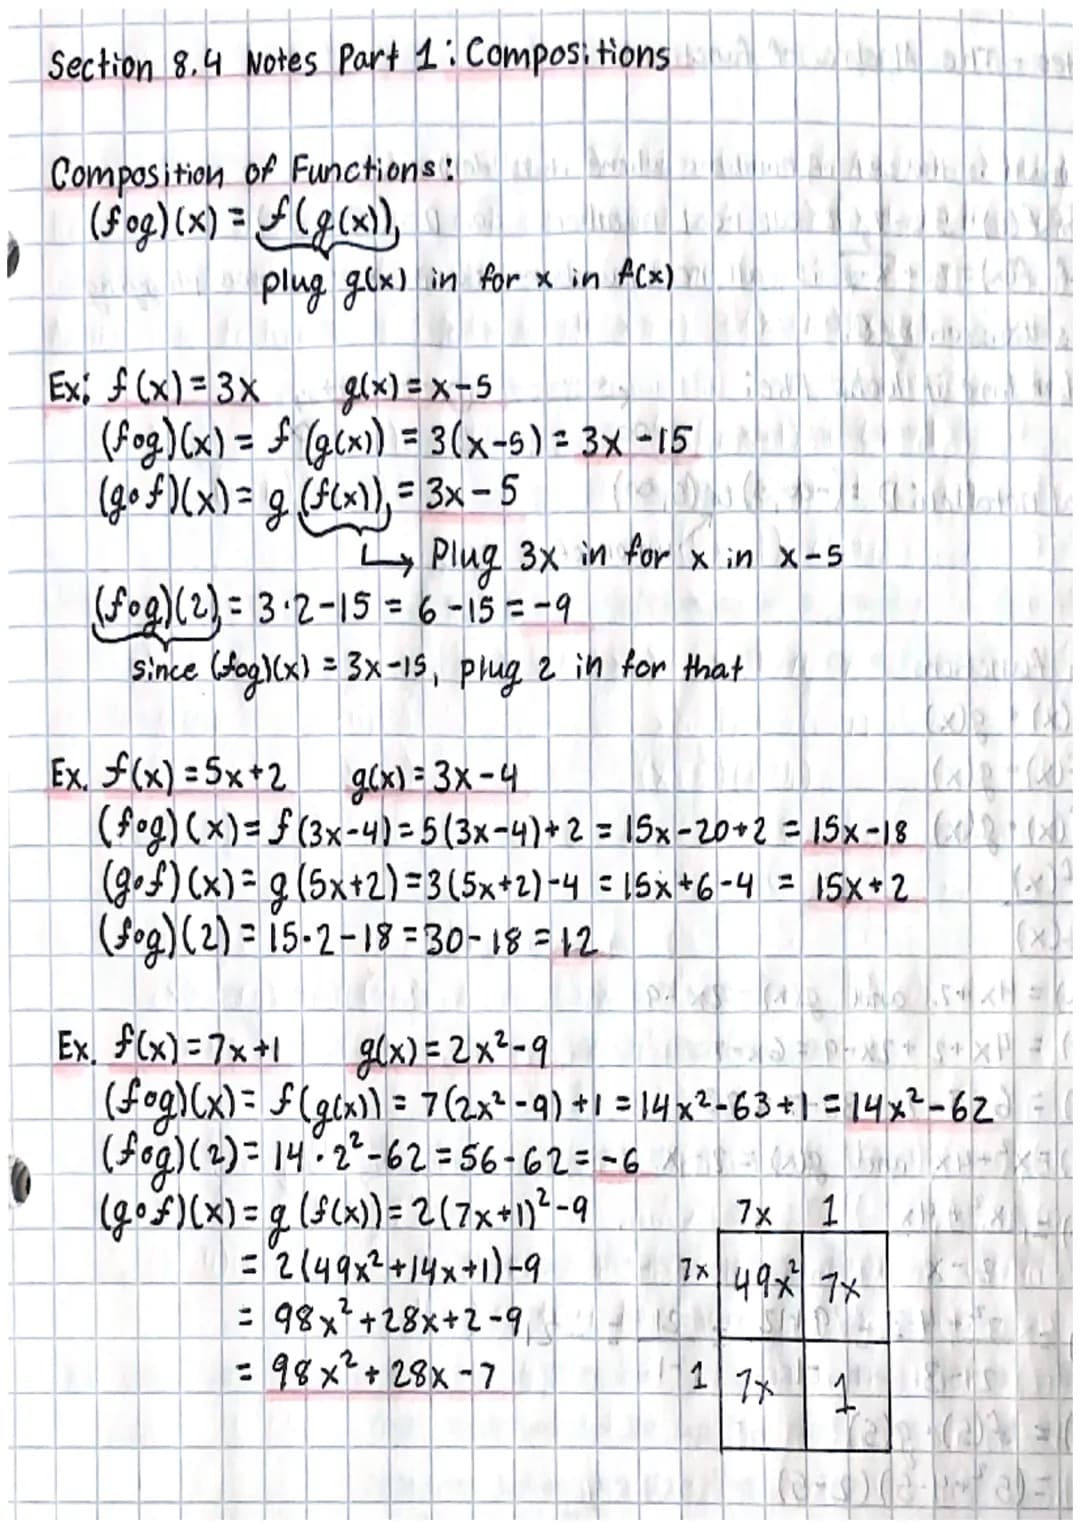 Section 8.4 Notes Part 1: Compositions
Composition of Functions:
(f∘g)(x) = f(g(x))
plug g(x) in for x in f(x)
Ex: f(x) = 3x g(x) = x-5
(f∘g)(x) = f(g(x)) = 3(x-5) = 3x-15
(g∘f)(x) = g(f(x)) = 3x-5
↳ Plug 3x in for x in x-5
(f∘g)(2) = 3·2-15 = 6-15 = -9
since (f∘g)(x) = 3x-15, plug 2 in for that
Ex. f(x) = 5x+2 g(x) = 3x-4
(f∘g)(x) = f(3x-4) = 5(3x-4)+2 = 15x-20+2 = 15x-18
(g∘f)(x) = g(5x+2) = 3(5x+2)-4 = 15x+6-4 = 15x+2
(f∘g)(2) = 15·2-18 = 30-18 = 12
Ex. f(x) = 7x+1 g(x) = 2x²-9
(f∘g)(x) = f(g(x)) = 7(2x²-9)+1 = 14x²-63+1 = 14x²-62
(f∘g)(2) = 14·2²-62 = 56-62 = -6
(g∘f)(x) = g(f(x)) = 2(7x+1)²-9
= 2(49x²+14x+1)-9
= 98x²+28x+2-9
= 98x²+28x-7
7x 1
7x 49x² 7x
1 7x 1